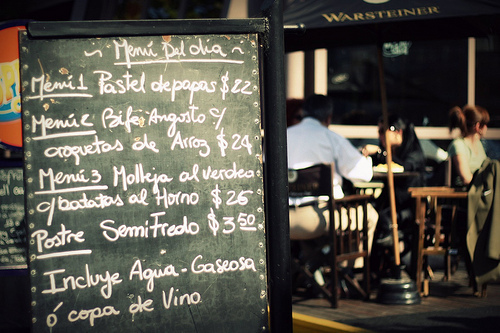 WARSTEINER
~ Menú Del día ~
Menú 1 Pastel de papas $22
Menú 2 Bife Angosto c/
croquetas de Arroz $24
Menú 3 Molleja al verdeo
c/batatas al Horno $26
Postre SemiFredo $3 50
Incluye Agua - Gaseosa
ó copa de Vino